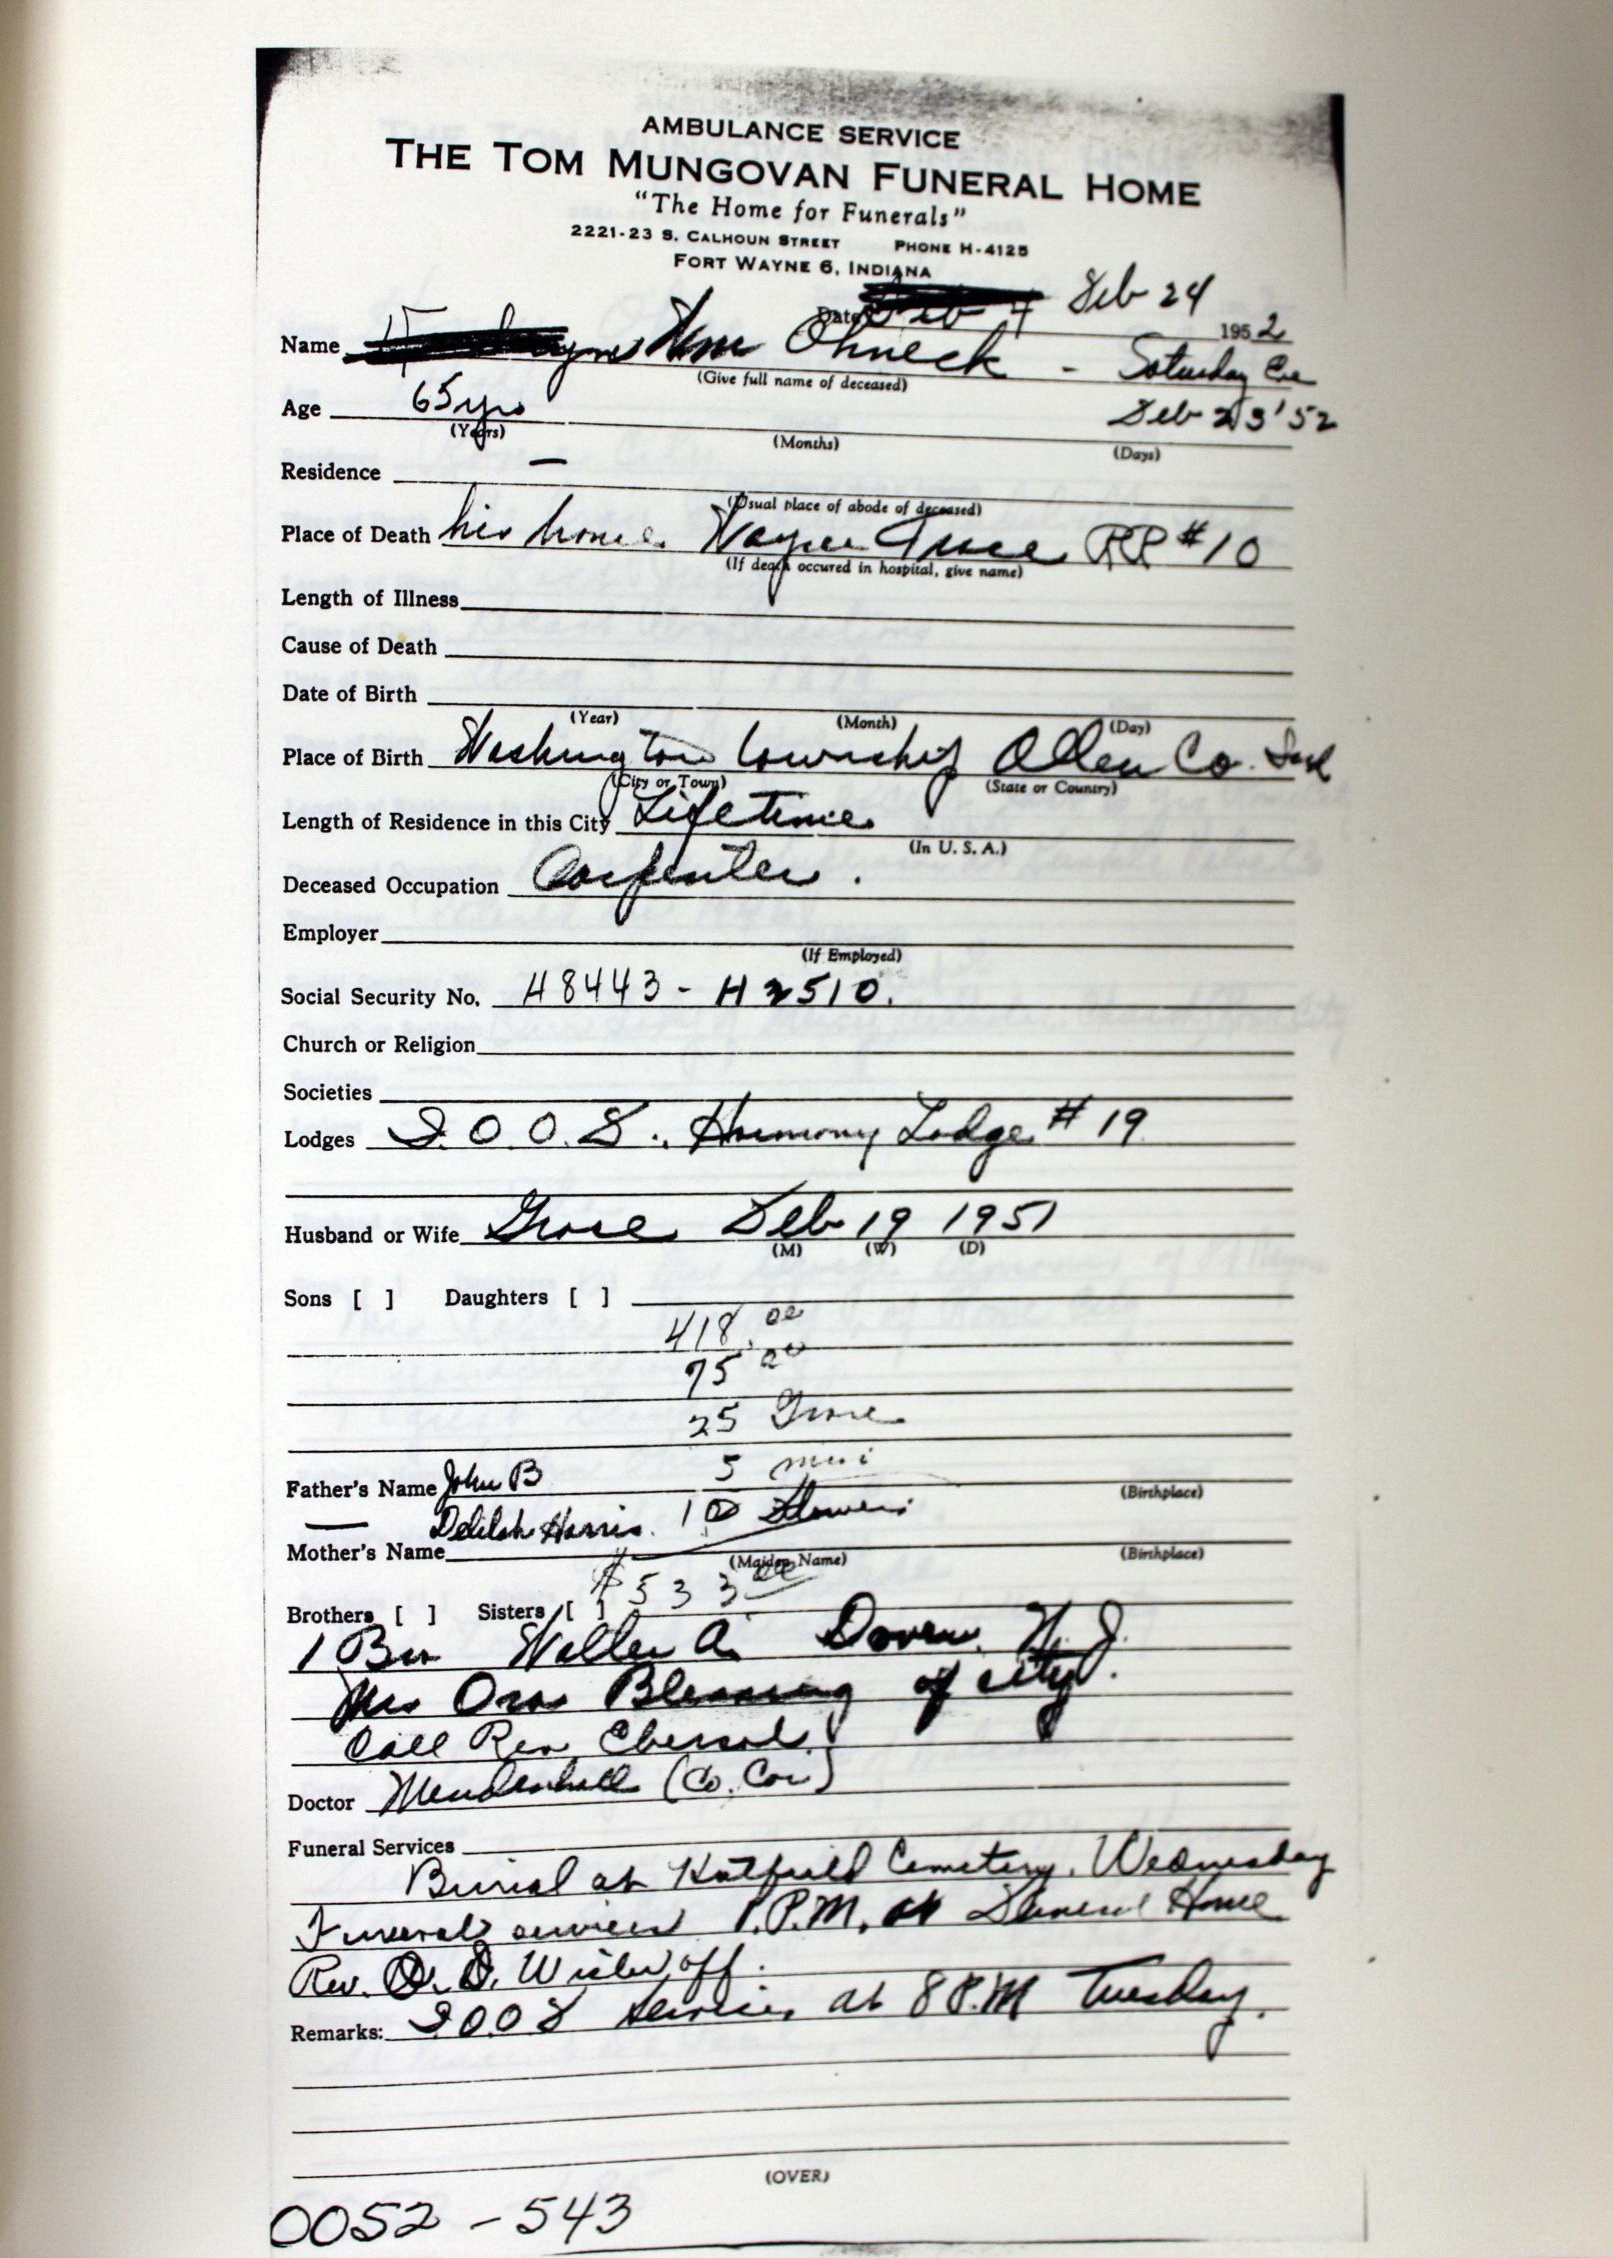 AMBULANCE SERVICE
THE TOM MUNGOVAN FUNERAL HOME
"The Home for Funerals"
2221-23 S. CALHOUN STREET PHONE H-4125
FORT WAYNE 6, INDIANA
Date Feb 24 1952
Name Wm Ohneck - Saturday Eve
(Give full name of deceased)
Age 65 yrs Feb 23 '52
(Years) (Months) (Days)
Residence —
(Usual place of abode of deceased)
Place of Death his home. Wayne Trace RR #10
(If death occured in hospital, give name)
Length of Illness
Cause of Death
Date of Birth
(Year) (Month) (Day)
Place of Birth Washington township Allen Co. Ind
(City or Town) (State or Country)
Length of Residence in this City Lifetime
(In U. S. A.)
Deceased Occupation Carpenter.
Employer
(If Employed)
Social Security No. H8443 - H2510.
Church or Religion
Societies
Lodges I.O.O.F., Harmony Lodge #19
Husband or Wife Feb 19 1951
(M) (W) (D)
Sons [ ] Daughters [ ]
418.00
75 00
25
5
Father's Name John B
(Birthplace)
Delilah Harris. 10 Flowers
Mother's Name
(Maiden Name) (Birthplace)
$533 00
Brothers [ ] Sisters [ ]
1 Bro Walter A. Dover, N.J.
Mrs Ora Blessing of city.
Call Rev. Ebersol
Doctor Mendenhall (Co. Cor)
Funeral Services
Burial at Hatfield Cemetery. Wednesday
Funeral services 1.P.M. at Funeral Home
Rev. off.
Remarks: I.O.O.F services at 8 P.M Tuesday.
(OVER)
0052 - 543